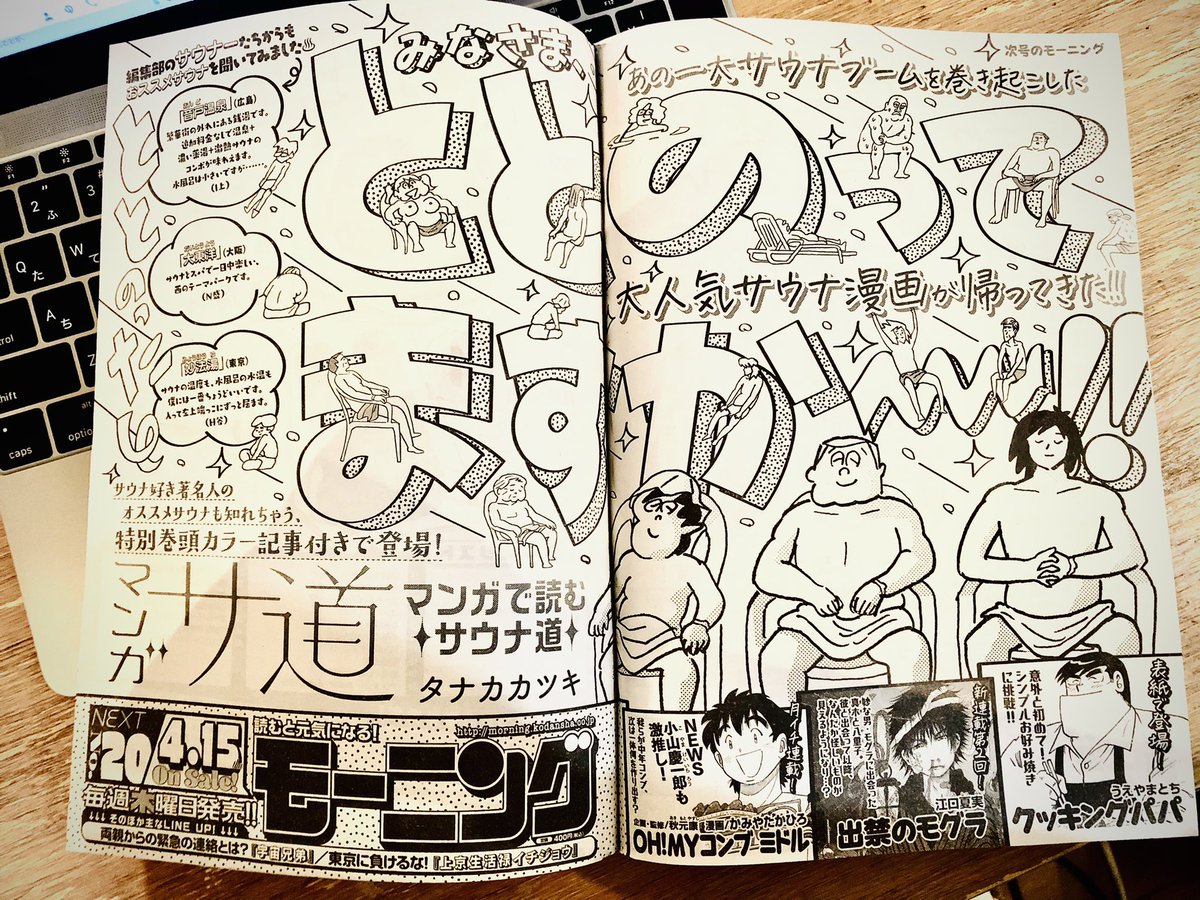 次号のモーニング
あの一大サウナブームを巻き起こした
大人気サウナ漫画が帰ってきた!!!
みなさま、
ととのって
ますか〜〜!!
編集部のサウナーたちからも
おススメサウナを聞いてみました♨
「音戸温泉」(広島)
繁華街の外れにある銭湯です。
追加料金なしで温泉+
濃い薬湯+激熱サウナの
コンボが味わえます。
水風呂は小さいですが……
(I上)
「大東洋」(大阪)
サウナとスパで一日中楽しい、
西のテーマパークです。
(N盛)
「妙法湯」(東京)
サウナの温度も、水風呂の水温も
僕には一番ちょうどいいです。
入って左上端っこにずっと居ます。
(H谷)
サウナ好き著名人の
オススメサウナも知れちゃう、
特別巻頭カラー記事付きで登場!
マンガ サ道
マンガで読む
サウナ道
タナカカツキ
NEXT
20
4.15
On Sale!
毎週木曜日発売!!
↓↓↓そのほか主なLINE UP!↓↓↓
読むと元気になる!
http://morning.kodansha.co.jp
モーニング
定価400円(税込)
両親からの緊急の連絡とは?『宇宙兄弟』/東京に負けるな!『上京生活録イチジョウ』
NEWS
小山慶一郎も
激推し!
企画・監修/秋元康 漫画/かみやたかひろ
OH!MYコンブ ミドル
新連載第2回!
江口夏実
出禁のモグラ
表紙で登場!
意外と初めて!?
シンプルお好み焼き
に挑戦!!
うえやまとち
クッキングパパ
caps
option